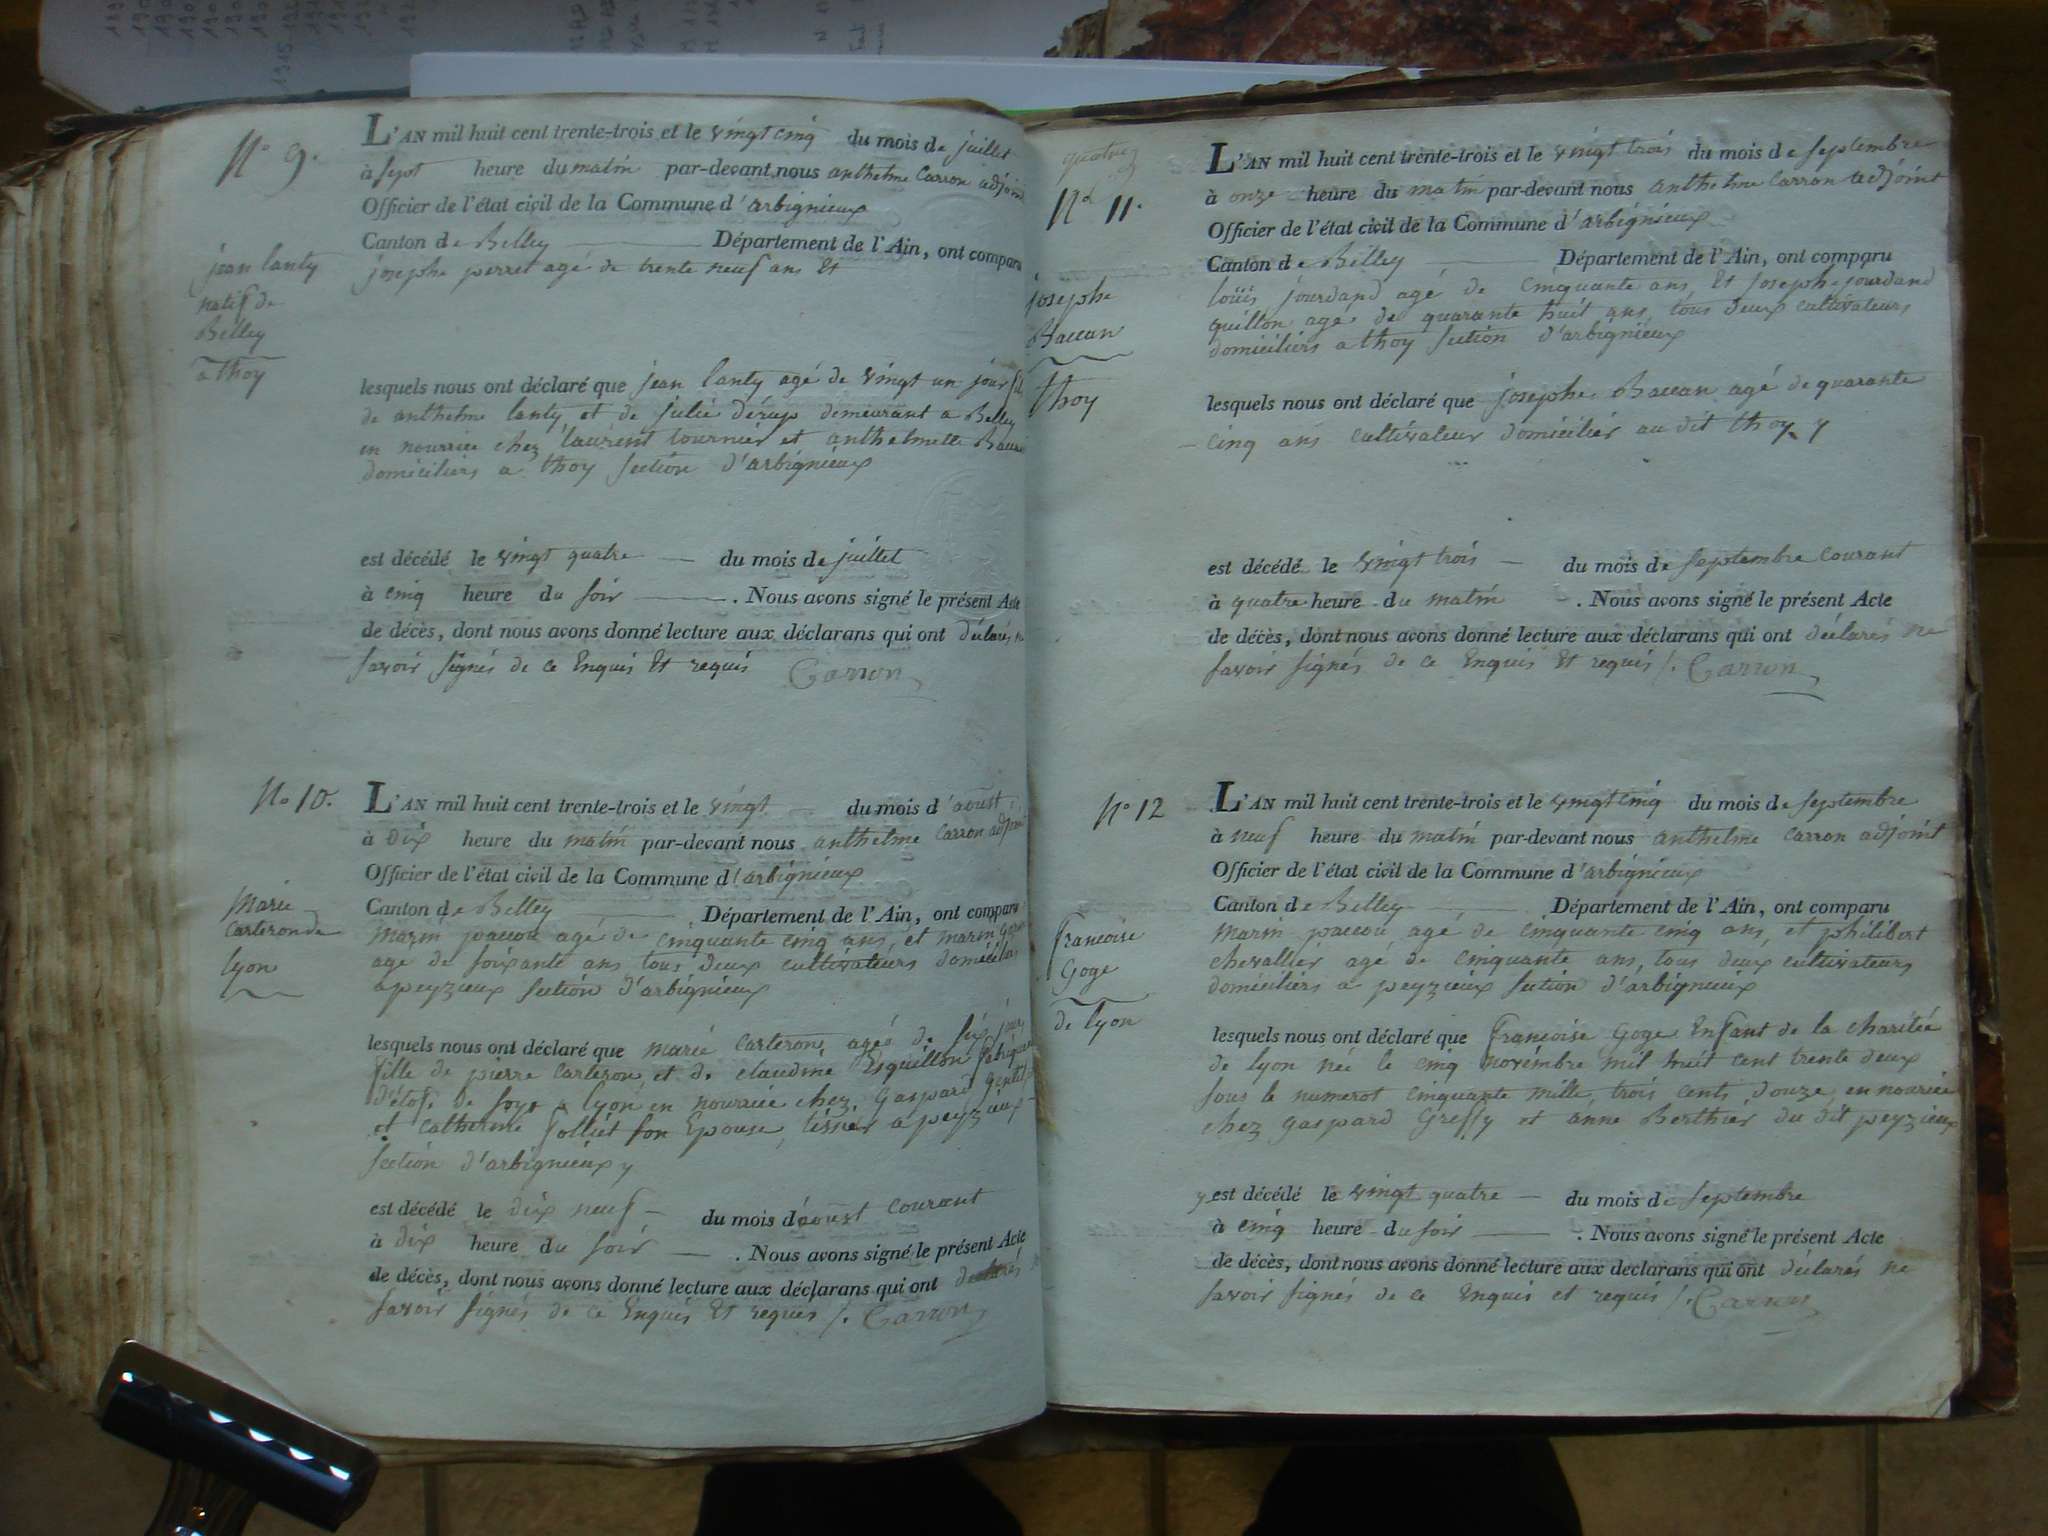 N° 9.
jean lanty
natif de
Belley
a thoy
L'AN mil huit cent trente-trois et le vingt cinq du mois de juillet
à sept heure du matin par-devant nous anthelme Carron adjoint
Officier de l'état civil de la Commune d'arbignieux
Canton de Belley Département de l'Ain, ont comparu
josephe perret agé de trente neuf ans Et
lesquels nous ont déclaré que jean lanty agé de vingt un jour
de anthelme lanty et de julie demeurant a Belley
en nourrice chez laurent tournier et anthelmette
domiciliers a thoy section d'arbignieux
est décédé le vingt quatre — du mois de juillet
à cinq heure du soir — . Nous avons signé le présent Acte
de décès, dont nous avons donné lecture aux déclarans qui ont déclarés ne
savoir signés de ce Enquis Et requis Carron
N° 10.
Marie
Carteron de
lyon
L'AN mil huit cent trente-trois et le vingt du mois d'aoust
à dix heure du matin par-devant nous anthelme Carron adjoint
Officier de l'état civil de la Commune d'arbignieux
Canton de Belley Département de l'Ain, ont comparu
Marin paccou agé de cinquante cinq ans, et marin
agé de soixante ans tous deux cultivateurs domiciliers
a peyzieux section d'arbignieux
lesquels nous ont déclaré que marie carteron, agée de six jours
fille de pierre carteron et de claudine Esquillon
d'étof. de soye a lyon en nourrice chez gaspard
et catherine son Epouse, tissier a peyzieux
section d'arbignieux y
est décédé le dix neuf — du mois d'aoust courant
à dix heure du soir — . Nous avons signé le présent Acte
de décès, dont nous avons donné lecture aux déclarans qui ont declarés
savoir signés de ce Enquis Et requis /. Carron
N° 11.
josephe
Baccan
thoy
L'AN mil huit cent trente-trois et le vingt trois du mois de septembre
à onze heure du matin par-devant nous anthelme Carron adjoint
Officier de l'état civil de la Commune d'arbignieux
Canton de Belley Département de l'Ain, ont comparu
loüis jourdand agé de cinquante ans, Et josephe jourdand
quillon agé de quarante huit ans, tous deux cultivateurs
domiciliers a thoy section d'arbignieux
lesquels nous ont déclaré que josephe Baccan agé de quarante
cinq ans cultivateur domicilier au dit thoy y
est décédé le vingt trois — du mois de septembre courant
à quatre heure du matin — . Nous avons signé le présent Acte
de décès, dont nous avons donné lecture aux déclarans qui ont déclarés ne
savoir signés de ce Enquis Et requis /. Carron
N° 12
francoise
Goge
de lyon
L'AN mil huit cent trente-trois et le vingt cinq du mois de septembre
à neuf heure du matin par-devant nous anthelme carron adjoint
Officier de l'état civil de la Commune d'arbignieux
Canton de Belley Département de l'Ain, ont comparu
Marin paccou agé de cinquante cinq ans, et philibert
chevallier agé de cinquante ans, tous deux cultivateurs
domiciliers a peyzieux section d'arbignieux
lesquels nous ont déclaré que francoise Goge Enfant de la charitée
de lyon née le cinq novembre mil huit cent trente deux
sous le numerot cinquante mille trois cents douze, en nourrice
chez gaspard Greffy et anne Berthier du dit peyzieux
y est décédé le vingt quatre — du mois de septembre
à cinq heure du soir — . Nous avons signé le présent Acte
de décès, dont nous avons donné lecture aux declarans qui ont déclarés ne
savoir signés de ce Enquis et requis /. Carron